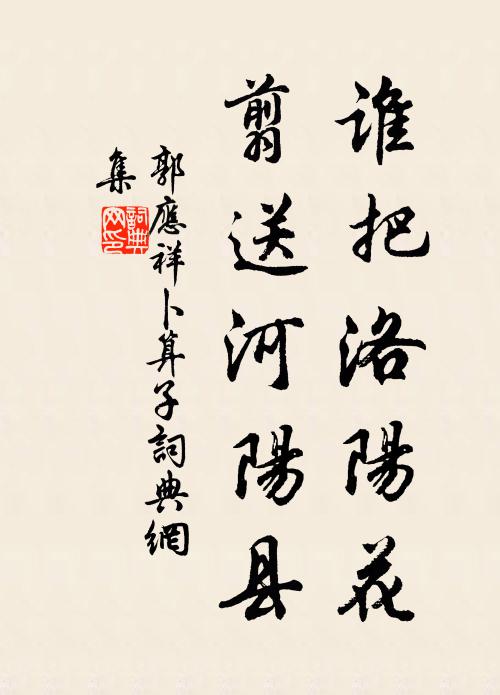 谁把洛陽花
剪送河陽县
郭應祥卜算子詞典網
集
詞典
网印